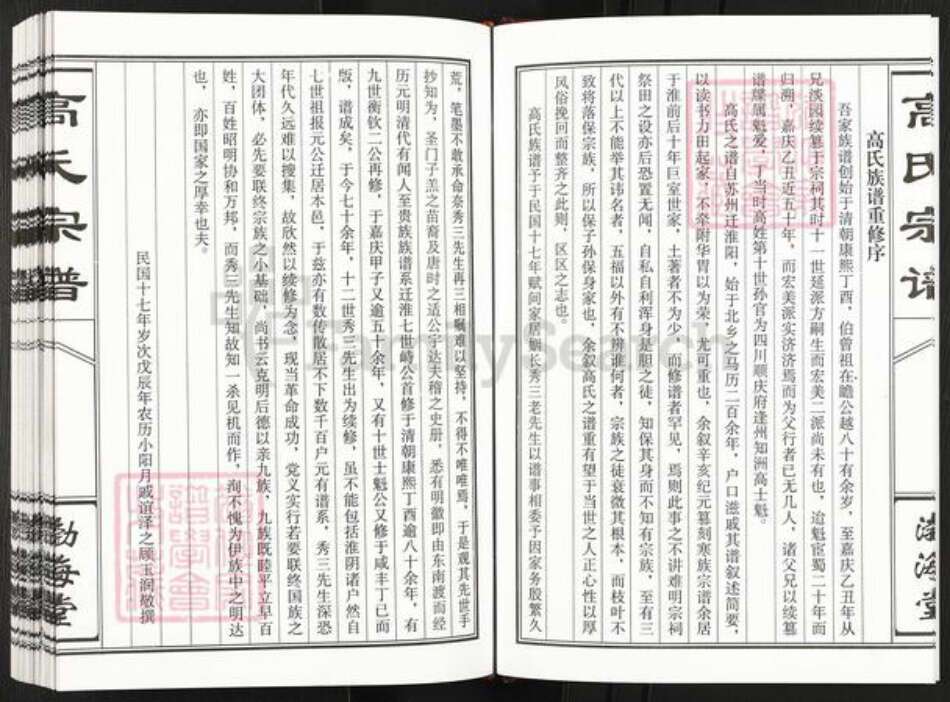 高氏宗谱
渤海堂
高氏族谱重修序
吾家族谱创始于清朝康熙丁酉，伯曾祖在瞻公越八十有余岁，至嘉庆乙丑年从
兄淡园续纂于宗祠其时十一世延派方嗣生而宏美二派尚未有也，迨魁宦蜀二十年而
归溯，嘉庆乙丑近五十年，而宏美派实济济焉而为父行者已无几人，诸父兄以续纂
谱牒属魁爱，丁当时高姓第十世孙官为四川顺庆府逢州知洲高士魁。
高氏之谱自苏州迁淮阳，始于北乡之马历二百余年，户口滋戚其谱叙述简要，
以读书力田起家，不牵附华胄以为荣，尤可重也，余叙辛亥纪元纂刻寒族宗谱余居
于淮前后十年巨室世家，土著者不为少，而修谱者罕见，焉则此事之不讲难明宗祠
祭田之设亦后恐置无闻，自私自利浑身是胆之徒，知保其身而不知有宗族，至有三
代以上不能举其讳名者，五福以外有不辨谁何者，宗族之徒衰微其根本，而枝叶不
致将落保宗族，所以保子孙保身家也，余叙高氏之谱重有望于当世之人正心性以厚
风俗挽回而整齐之此则，区区之志也。
高氏族谱予于民国十七年赋闲家居姻长秀三老先生以谱事相委予因家务殷繁久
荒，笔墨不敢承命奈秀三先生再三相嘱难以坚持，不得不唯唯焉，于是观其先世手
抄知为，圣门子羔之苗裔及唐时之适公宇达夫稽之史册，悉有明徽即由东南渡而经
历元明清代有闻人至贵族族谱系迁淮七世峙公首修于清朝康熙丁酉逾八十余年，有
九世衡钦二公再修，于嘉庆甲子又逾五十余年，又有十世士魁公又修于咸丰丁已而
版，谱成矣，于今七十余年，十二世秀三先生出为续修，虽不能包括淮阴诸户然自
七世祖报元公迁居本邑，于兹亦有数传散居不下数千百户元有谱系，秀三先生深恐
年代久远难以搜集，故欣然以续修为念，现当革命成功，党义实行若要联终国族之
大团体，必先要联终宗族之小基础，尚书云克明后德以亲九族，九族既睦平立早百
姓，百姓昭明协和万邦，而秀三先生知故知一杀见机而作，洵不愧为伊族中之明达
也，亦即国家之厚幸也夫。
民国十七年岁次戊辰年农历小阳月戚谊泽之顾玉润敬撰
高氏宗谱
渤海堂
FamilySearch